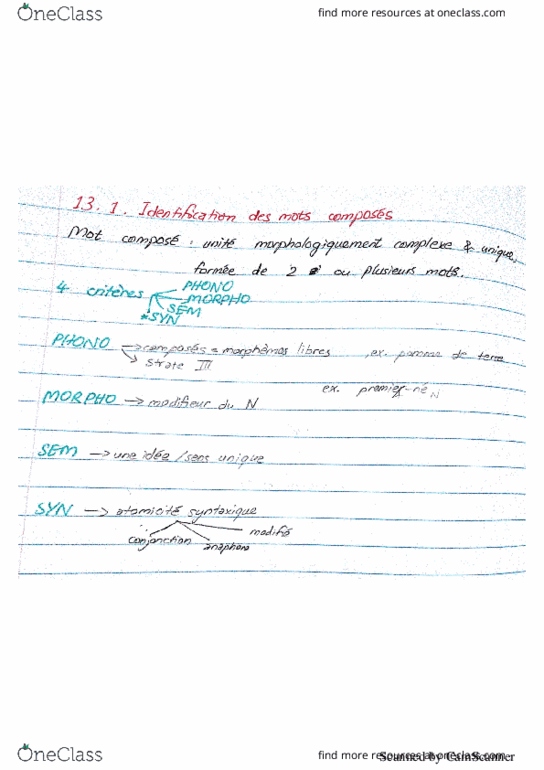 OneClass
find more resources at oneclass.com
13.1. Identification des mots composés
Mot composé : unité morphologiquement complexe & unique,
formée de 2 ou plusieurs mots.
4 critères PHONO
MORPHO
SEM
*SYN
PHONO → composés = morphèmes libres , ex. pomme de terre
→ strate III
ex. premier-né N
MORPHO → modifieur du N
SEM → une idée / sens unique
SYN → atomicité syntaxique
modifié
conjonction
anaphore
OneClass
find more resources at oneclass.com
Scanned by CamScanner